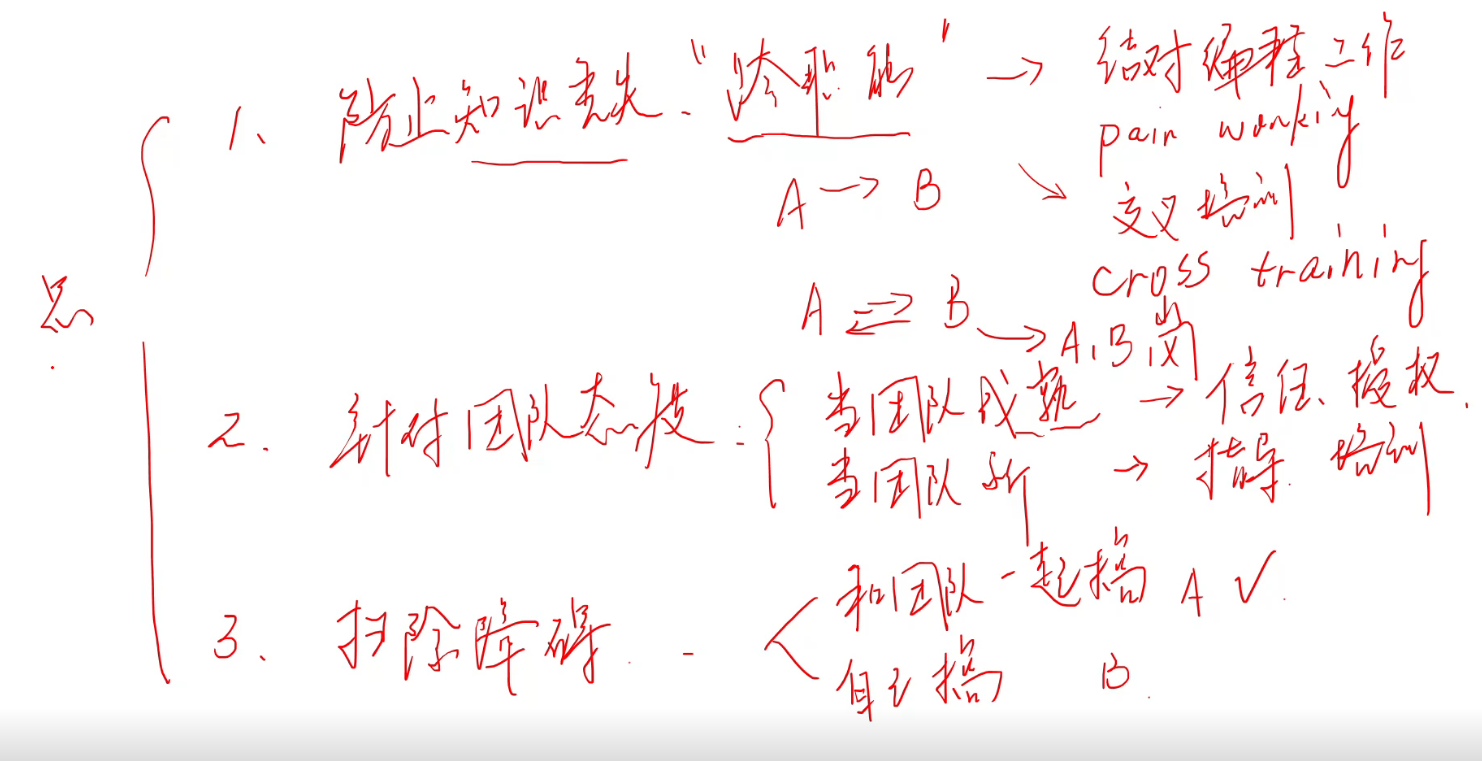 总
1、防止知识丢失、“跨职能” → 结对编程工作
pair working
A → B
交叉培训
cross training
A ⇌ B → A、B岗
2. 针对团队态度: 当团队成熟 → 信任、授权.
当团队新 → 指导. 培训
3、扫除障碍. - 和团队一起搞 A ✓.
自己搞 B.